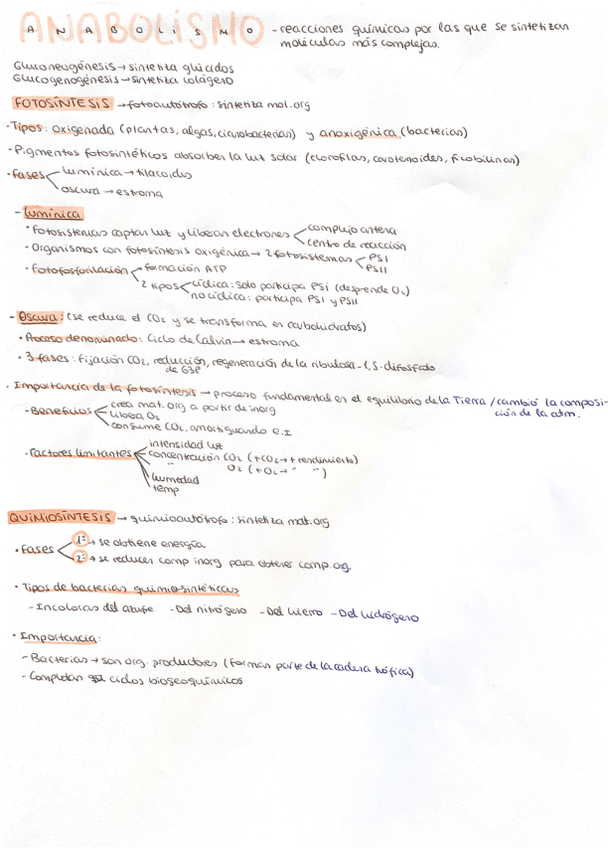 ANABOLISMO - reacciones químicas por las que se sintetizan
moléculas más complejas.
Gluconeogénesis → sintetiza glúcidos
Glucogenogénesis → sintetiza colágeno
FOTOSÍNTESIS → fotoautótrofo: sintetiza mol. org
· Tipos: oxigenada (plantas, algas, cianobacterias) y anoxigénica (bacterias)
· Pigmentos fotosintéticos absorben la luz solar (clorofilas, carotenoides, ficobilinas)
· Fases lumínica → tilacoides
oscura → estroma
- Lumínica
· Fotosistemas captan luz y liberan electrones complejo antena
centro de reacción
· Organismos con fotosíntesis oxigénica → 2 fotosistemas PSI
PSII
· Fotofosforilación formación ATP
2 tipos cíclica: solo participa PSI (desprende O₂)
no cíclica: participa PSI y PSII
- Oscura: (se reduce el CO₂ y se transforma en carbohidratos)
· Proceso denominado: Ciclo de Calvin → estroma
· 3 fases: fijación CO₂, reducción, regeneración de la ribulosa-1,5-difosfado
de G3P
· Importancia de la fotosíntesis → proceso fundamental en el equilibrio de la Tierra / cambió la composi-
ción de la atm.
- Beneficios crea mat. org a partir de inorg
libera O₂
consume CO₂, amortiguando e.i
- Factores limitantes intensidad luz
concentración CO₂ (+CO₂ → + rendimiento)
" O₂ (+O₂ → - " ")
humedad
temp
QUIMIOSÍNTESIS → quimioautótrofo: sintetiza mat. org
· Fases 1ª → se obtiene energía
2ª → se reducen comp inorg para obtener comp. og.
· Tipos de bacterias quimiosintéticas
- Incoloras del azufre - Del nitrógeno - Del hierro - Del hidrógeno
· Importancia:
- Bacterias → son org. productores (forman parte de la cadena trófica)
- Completan ciclos biogeoquímicos